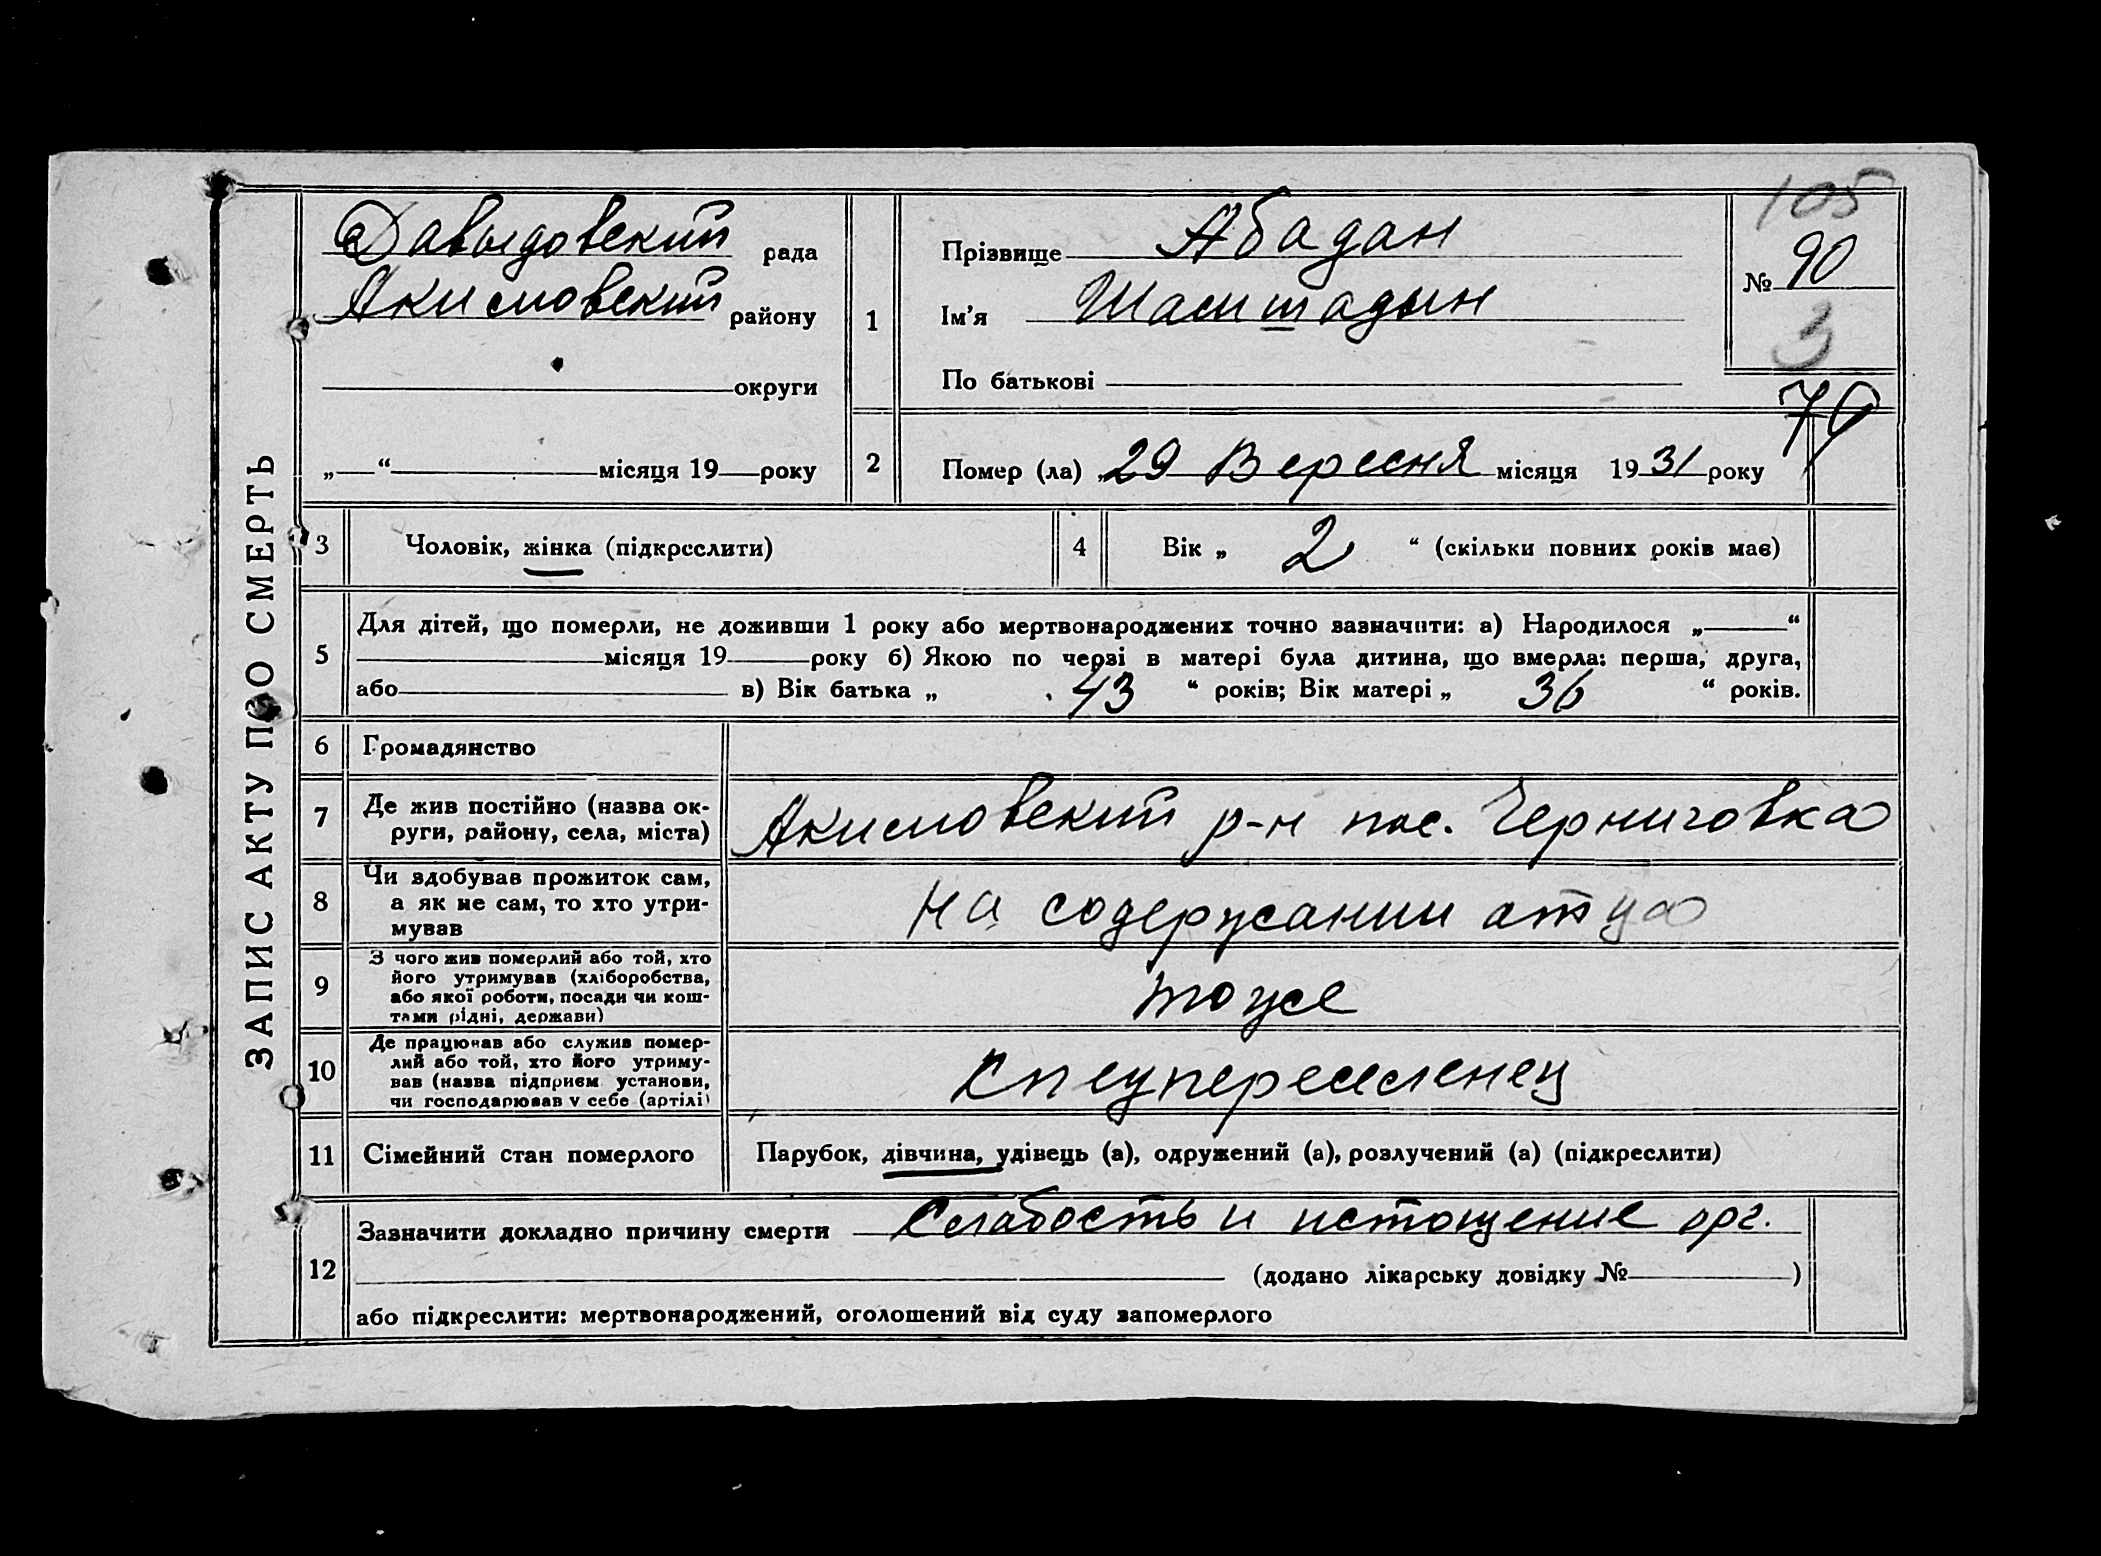 ЗАПИС АКТУ ПРО СМЕРТЬ
Давыдовский рада
Акимовский району
округи
„ “ місяця 19 року
1
Прізвище Абадан
Ім'я Шамшадын
По батькові
105
№ 90
3
70
2
Помер (ла) „29 Вересня місяця 1931 року
3
Чоловік, жінка (підкреслити)
4
Вік „ 2 “ (скільки повних років має)
5
Для дітей, що померли, не доживши 1 року або мертвонароджених точно зазначити: а) Народилося „ “
місяця 19 року б) Якою по черзі в матері була дитина, що вмерла: перша, друга,
або в) Вік батька „ 43 “ років; Вік матері „ 36 “ років.
6
Громадянство
7
Де жив постійно (назва ок-
руги, району, села, міста)
Акимовский р-н пос. Черниговка
8
Чи здобував прожиток сам,
а як не сам, то хто утри-
мував
на содержании отца
9
З чого жив померлий або той, хто
його утримував (хліборобства,
або якої роботи, посади чи кош-
тами рідні, держави)
тоже
10
Де працював або служив помер-
лий або той, хто його утриму-
вав (назва підприєм. установи,
чи господарював у себе (артілі)
Спецпереселенец
11
Сімейний стан померлого
Парубок, дівчина, удівець (а), одружений (а), розлучений (а) (підкреслити)
12
Зазначити докладно причину смерти Слабость и истощение орг.
(додано лікарську довідку № )
або підкреслити: мертвонароджений, оголошений від суду запомерлого